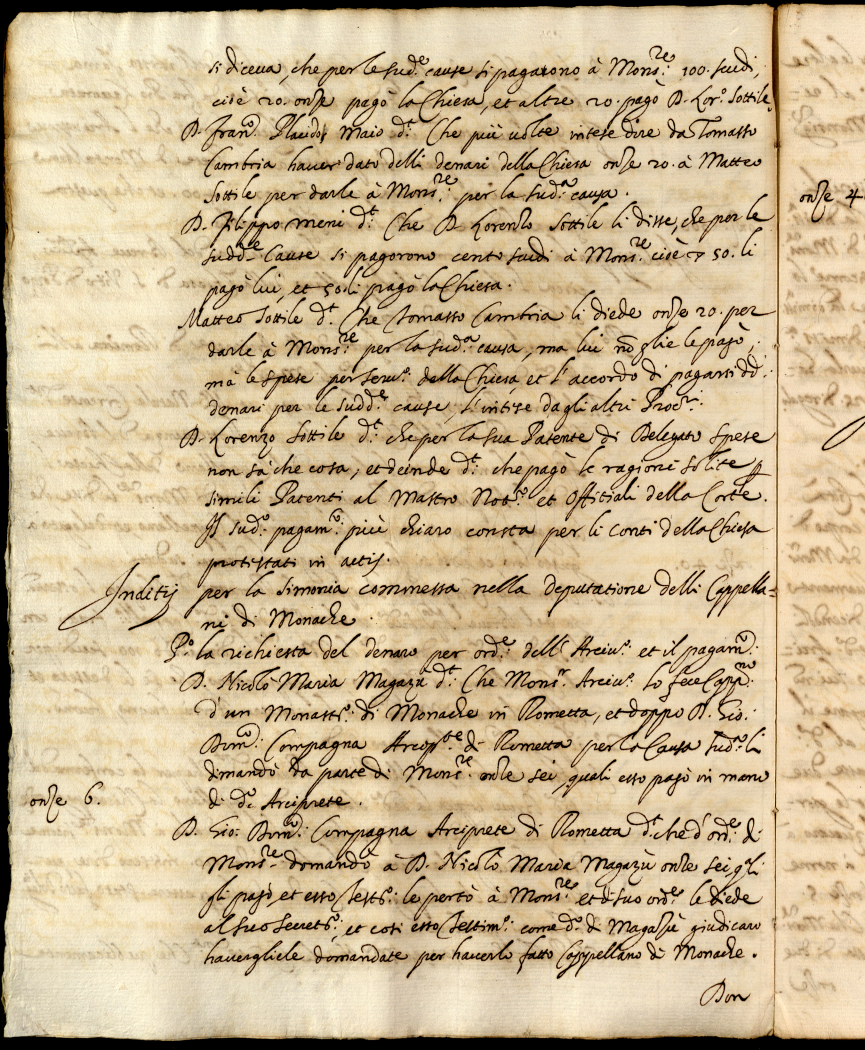 si diceua, che per le sud.e cause si pagarono à Mons.re 100. scudi,
cioè 20. onze pagò la Chiesa, et altre 20. pagò D. Lor.o Sottile.
D. Fran.o Placido Maio d.t Che più uolte intese dire da Tomasso
Cambria hauer dato delli denari della Chiesa onze 20. à Matteo
Sottile per darle à Mons.re per la sud.a causa.
D. Filippo meni d.t Che D. Lorenzo Sottile li disse, che per le
sudd.e Cause si pagorono cento scudi à Mons.re cioè 50. li
pagò lui, et 50. li pagò la Chiesa.
Matteo Sottile d.t Che Tomasso Cambria li diede onze 20. per
darle à Mons.re per la sud.a causa, ma lui nõ glie le pagò,
mà le spese per seru.o della Chiesa, et l'accordo di pagarsi dd.i
denari per le sudd.e cause, l'intese dagli altri Proc.ri
D. Lorenzo Sottile d.t che per la sua Patente di Delegato spese
non sà che cosa, et deinde d.t che pagò le ragioni solite p
simili Patenti al Mastro Not.o et Offitiali della Corte.
Il sud.o pagam.o più chiaro consta per li conti della Chiesa
protestati in actis.
Inditij per la simonia commessa nella deputatione delli Cappella=
ni di Monache.
P.o la richiesta del denaro per ord.e dell' Arciu.o et il pagam.o
D. Nicolò Maria Magazù d.t Che Mons.r Arciu.o lo fece Capp.no
d'un Monast.o di Monache in Rometta, et doppo D. Gio:
Dom.o Compagna Arcip.te di Rometta per la Causa sud.a li
dimandò da parte di Mons.re onze sei, quali esso pagò in mano
onze 6. di d.o Arciprete.
D. Gio: Dom.o Compagna Arciprete di Rometta d.t che d'ord.e di
Mons.re domandò à D. Nicolò Maria Magazù onze sei, q.li
gli pagò, et esso Test.o le portò à Mons.re et di suo ord.e le diede
al suo secret.o, et così esso Testim.o come d.o di Magazù giudicano
hauergliele domandate per hauerlo fatto Cappellano di Monache.
Don
onze 4